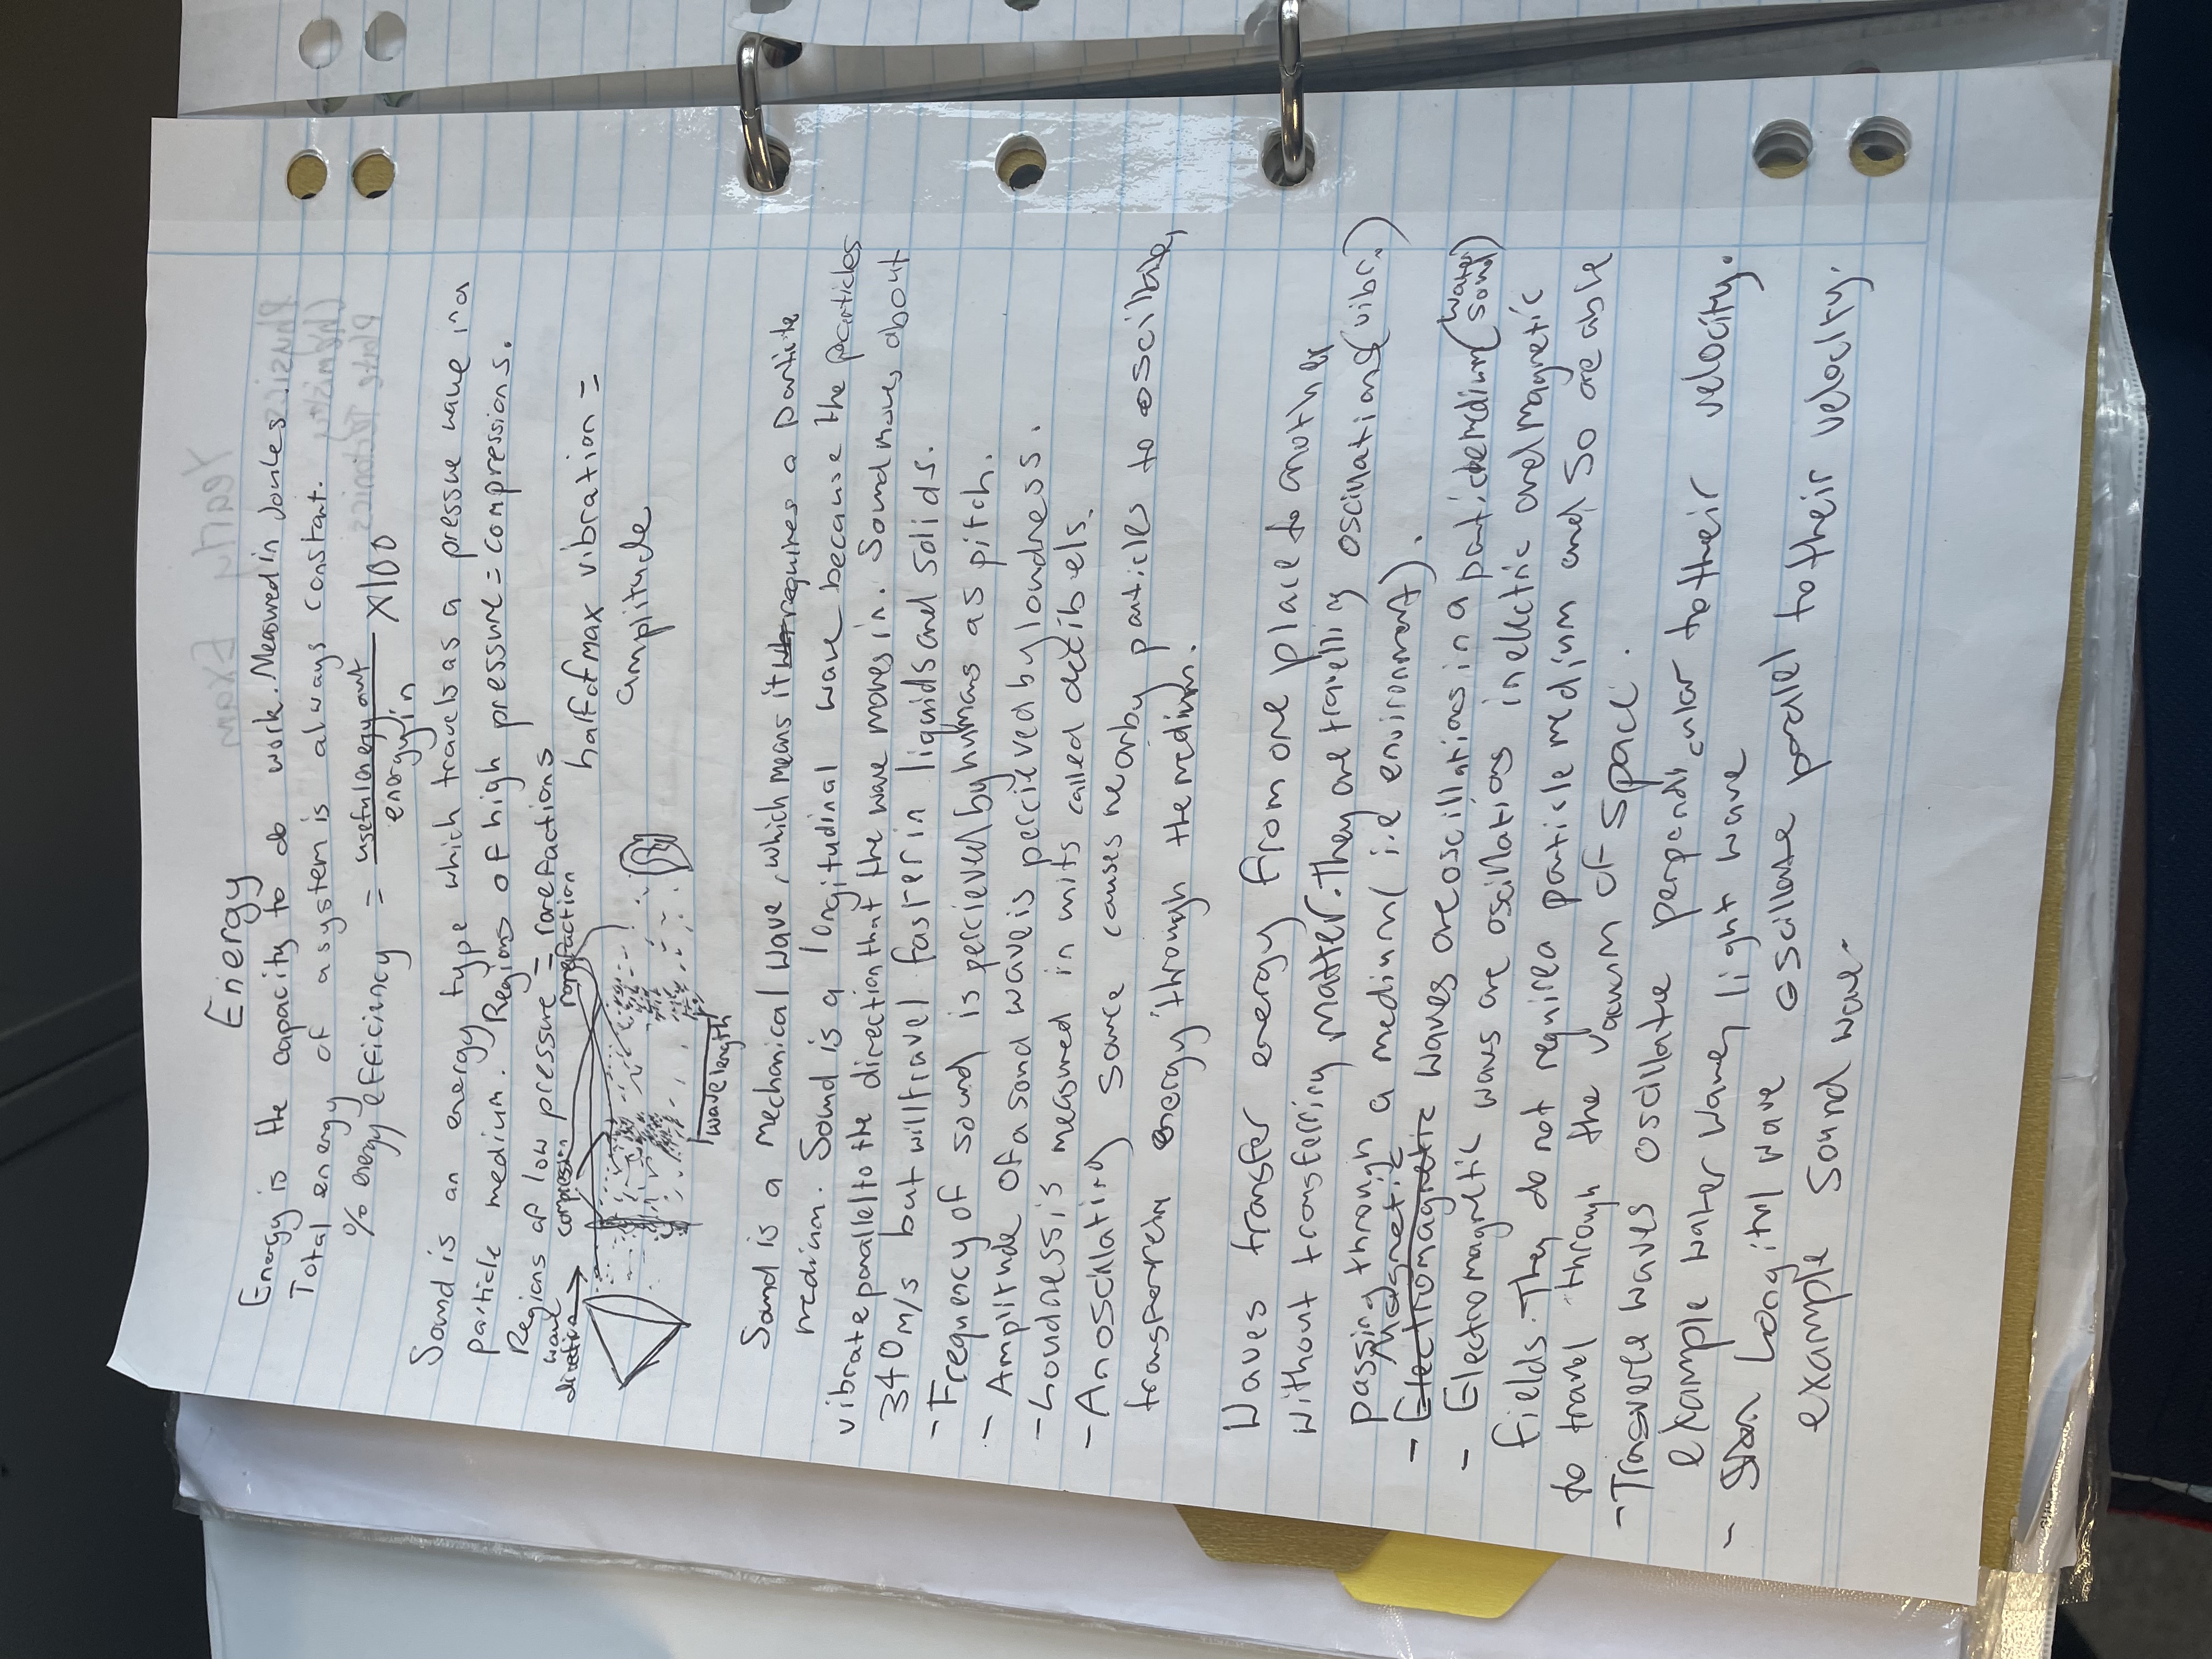 Energy
Energy is the capacity to do work. Measured in Joules.
Total energy of a system is always constant.
% energy efficiency = useful energy out / energy in X100
Sound is an energy type which travels as a pressure wave in a
particle medium. Regions of high pressure = compressions.
Regions of low pressure = rarefactions
wave direction
compression
rarefaction
half of max vibration =
amplitude
wavelength
Sound is a mechanical wave, which means it requires a particle
medium. Sound is a longitudinal wave because the particles
vibrate parallel to the direction that the wave moves in. Sound moves about
340m/s but will travel faster in liquids and solids.
- Frequency of sound is percieved by humans as pitch.
- Amplitude of a sound wave is percieved by loudness.
- Loudness is measured in units called decibels.
- An oscillating source causes nearby particles to oscillate,
energy through the medium.
Waves transfer energy from one place to another
without transferring matter. They are travelling oscillations (vibr.)
passing through a medium (i.e environment).
- Magnetic waves are oscillations in a particle medium (water sound)
- Electromagnetic waves are oscillations in electric and magnetic
fields. They do not require a particle medium and so are able
to travel through the vacuum of space.
- Trasverse waves oscillate perpendicular to their velocity.
example water wave, light wave
- wave oscillate parallel to their velocity.
example sound wave.
Yearly Exam
Physics
Chemistry
Plate Tectonics